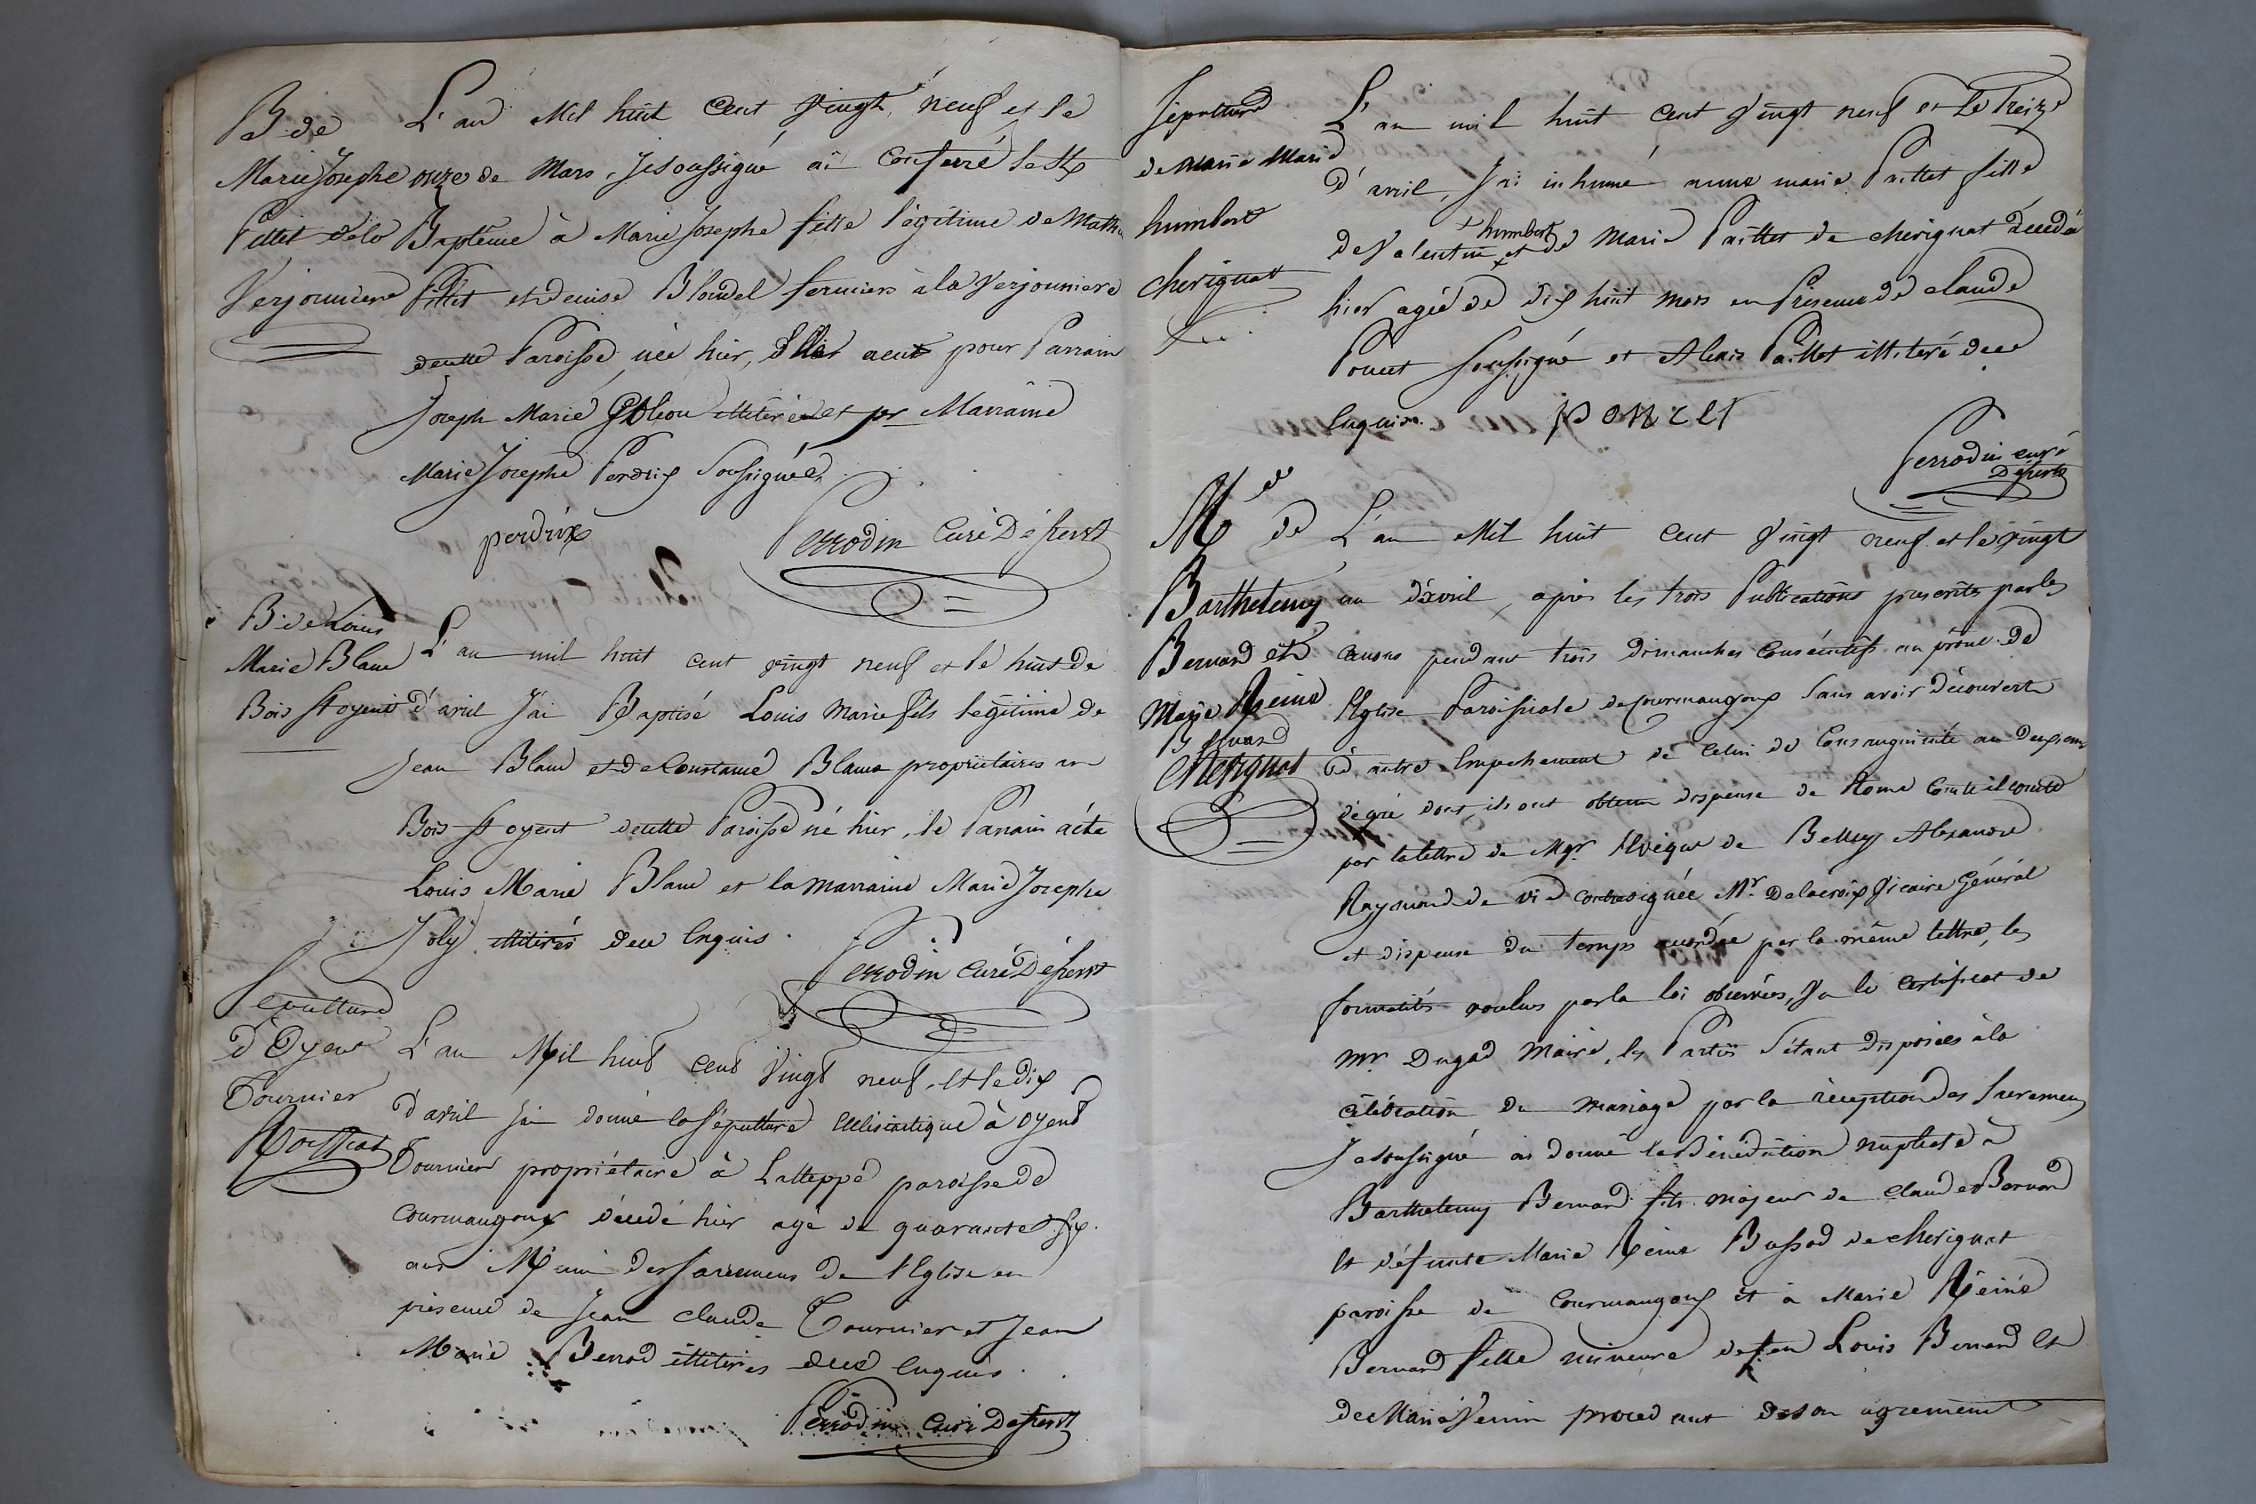 B. de
Marie Josephe
Pittet de la
Verjonniere
L'an Mil huit Cent Vingt neuf et le
onze de Mars, Je soussigné ai Conferé le St
Baptême à Marie Josephe fille légitime de Mathieu
Pittet et denise Blondel fermiers à la Verjonniere
decette Paroisse née hier, Elle a eut pour Parrain
Joseph Marie illitéré et pr Marraine
Marie Josephe Perdrix Soussignée
perdrix
Perrodin Curé Desserst
B. de Louis
Marie Blanc
Bois St oyent
L'an mil huit cent vingt neuf et le huit de
d'avril J'ai Baptisé Louis Marie fils légitime de
Jean Blanc et de Constance Blanc propriétaires en
Bois St oyent decette Paroisse né hier, le Parrain a été
Louis Marie Blanc et la marraine Marie Josephe
Joly illitérés dece Enquis.
Perrodin Curé Desserst
Sepulture
d'Oyent
Tournier
Roissiat
L'an Mil huit Cent Vingt neuf, et le dix
d'avril j'ai donné la Sépulture Ecclésiastique à oyent
Tournier propriétaire à Latteppé paroisse de
Courmangoux décédé hier agé de quarante six
ans Muni des Sacremens de l'Eglise en
présence de Jean Claude Tournier et Jean
Marie Berrod illitérés dece Enquis.
Perrodin Curé Desserst
Sépulture
de Marie Marie
humbert
cherignat
L'an mil huit Cent Vingt neuf et le Treize
d'avril, J'ai inhumé anne marie Paillet fille
de Valentin + humbert et de Marie Paillet de cherignat décédée
hier agée de dix huit mois en Présence de claude
Poncet Soussigné et Alexis Paillet illiteré dece
Enquis. PONCET
Perrodin curé
Desserst
Mge de
Barthelemy
Bernard et
Marie Reine
Bernard
Cherignat
L'an Mil huit Cent Vingt neuf et le vingt
un d'avril, après les trois Publications prescrites par les
Canons pendant trois dimanches Consécutifs au prône de
l'Eglise Paroissiale de Courmangoux Sans avoir découvert
d'autre Empechement de Celui de Consanguinité au deuxieme
dégré dont ils ont obtenu dispense de Rome Comme il conste
par la lettre de Mgr l'Evêque de Belley Alexandre
Raymond de vie Contresignée Mr. Delacroix Vicaire Général
et dispense du temps accordée par la même lettre, les
formalités voulues par la loi observées, Vu le Certificat de
Mr. Dugad Maire, les Parties S'étant disposées à la
célébration du mariage par la réception des Sacremens
Je soussigné ai donné la Bénédiction nuptiale à
Barthelemy Bernard fils majeur de Claude Bernard
et défunte Marie Reine Bussod de cherignat
paroisse de Courmangoux et à Marie Reine
Bernard fille mineure de feu Louis Bernard et
de Marie Perrin procedant de son agrement